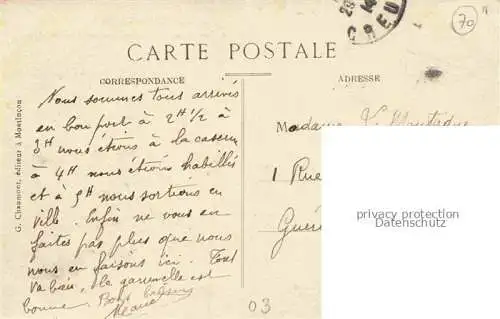 29
14
CREU
70
CARTE POSTALE
CORRESPONDANCE
ADRESSE
G. Chaumont, éditeur à Montluçon
Nous sommes tous arrivés
en bon port à 2H 1/2 à
3H nous étions à la casern
à 4H nous étions habillés
et à 5H nous sortions en
ville. Enfin ne vous en
faites pas plus que nous
nous en faisons ici. Tout
va bien, la gammelle est
bonne. Bons baisers
Madame
1 Rue
Guér
privacy protection
Datenschutz
03